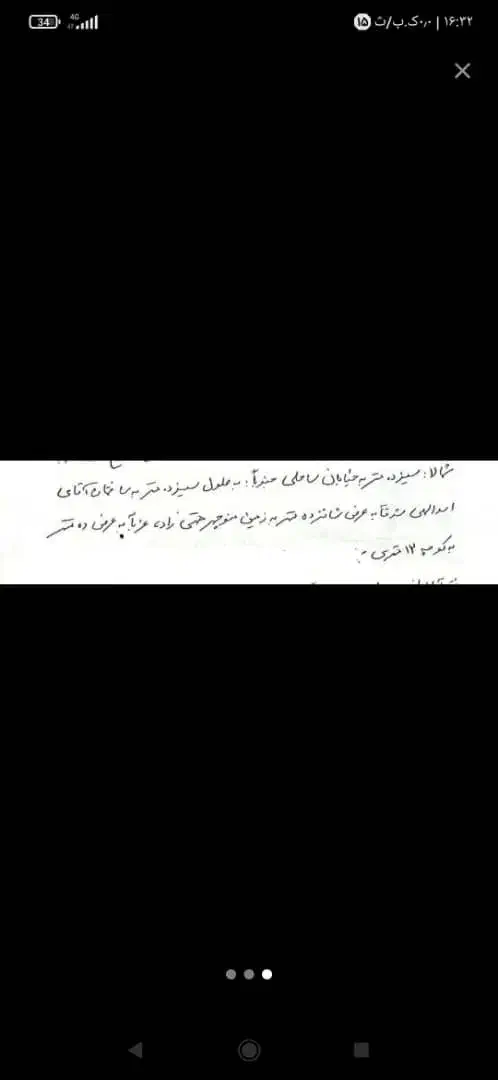 34 4G ۱۶:۳۲ | ۰٫۰ک.ب/ث ۱۵
شمالا: سیزده متر به خیابان ساحلی جنوباً: به طول سیزده متر به ساختمان آقای
اسدالهی شرقاً به عرض شانزده متر به زمین منوچهر زاده غرباً به عرض ده متر
به کوچه ۱۲ متری